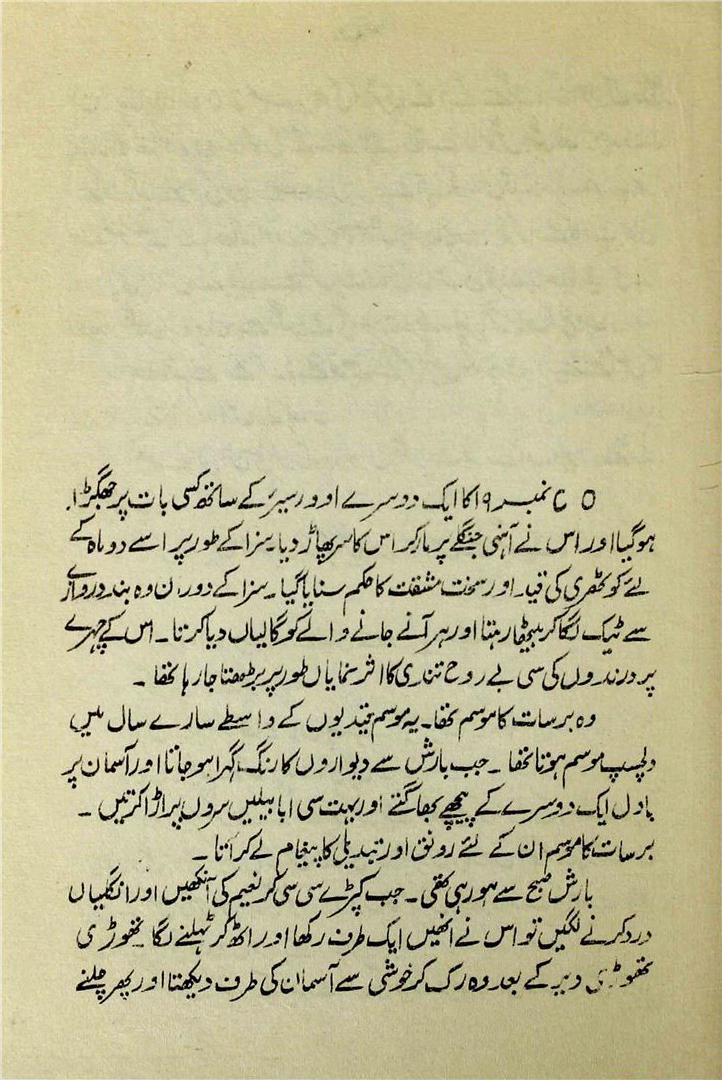 C O نمبر ۱۹ کا ایک دوسرے اوورسیر کے ساتھ کسی بات پر جھگڑا
ہوگیا اور اس نے آہنی جنگلے پر مار کر اس کا سر پھاڑ دیا۔ سزا کے طور پر اسے دو ماہ کے
لئے کوٹھری کی قید۔ اور سخت مشقت کا حکم سنایا گیا۔ سزا کے دوران وہ بند دروازے
سے ٹیک لگا کر بیٹھا رہتا اور ہر آنے جانے والے کو گالیاں دیا کرتا۔ اس کے چہرے
پر درندوں کی سی بے روح تندی کا اثر نمایاں طور پر بڑھتا جا رہا تھا۔
وہ برسات کا موسم تھا۔ یہ موسم قیدیوں کے واسطے سارے سال میں
دلچسپ موسم ہوتا تھا۔ جب بارش سے دیواروں کا رنگ گہرا ہو جاتا اور آسمان پر
بادل ایک دوسرے کے پیچھے بھاگتے اور بہت سی ابابیلیں سروں پر اڑا کرتیں۔
برسات کا موسم ان کے لئے رونق اور تبدیلی کا پیغام لے کر آتا۔
بارش صبح سے ہو رہی تھی۔ جب کپڑے سی سی کر نعیم کی آنکھیں اور انگلیاں
درد کرنے لگیں تو اس نے انھیں ایک طرف رکھا اور اٹھ کر ٹہلنے لگا۔ تھوڑی
تھوڑی دیر کے بعد وہ رک کر خوشی سے آسمان کی طرف دیکھتا اور پھر چلنے